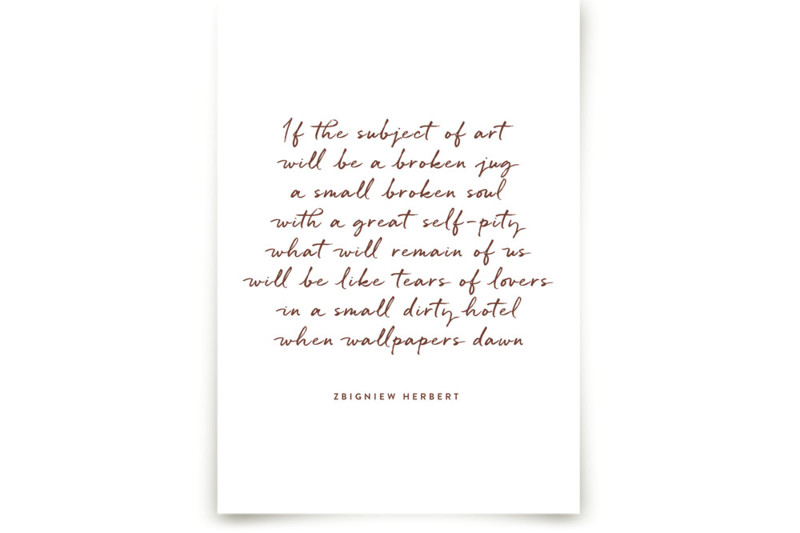 If the subject of art
will be a broken jug
a small broken soul
with a great self-pity
what will remain of us
will be like tears of lovers
in a small dirty hotel
when wallpapers dawn
ZBIGNIEW HERBERT